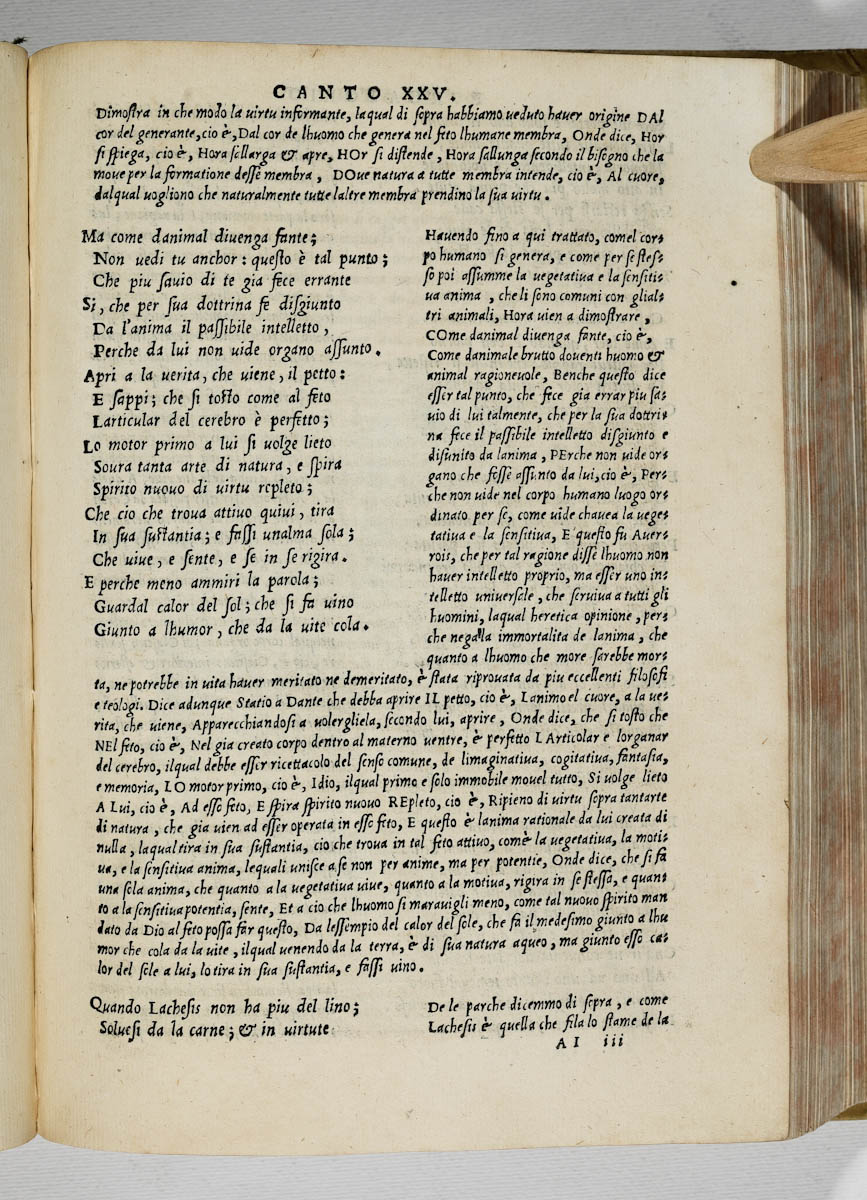 CANTO XXV.
Dimostra in che modo la uirtu informante, laqual di sopra habbiamo ueduto hauer origine DAl
cor del generante, cio è, Dal cor de lhuomo che genera nel feto lhumane membra, Onde dice, Hor
si spiega, cio è, Hora sallarga & apre, HOr si distende, Hora sallunga secondo il bisogno che la
moue per la formatione desse membra, DOue natura a tutte membra intende, cio è, Al cuore,
dalqual uogliono che naturalmente tutte laltre membra prendino la sua uirtu.
Ma come danimal diuenga fante;
Non uedi tu anchor: questo è tal punto;
Che piu sauio di te gia fece errante
Si, che per sua dottrina fe disgiunto
Da l'anima il passibile intelletto,
Perche da lui non uide organo assunto.
Apri a la uerita, che uiene, il petto:
E sappi; che si tosto come al feto
Larticular del cerebro è perfetto;
Lo motor primo a lui si uolge lieto
Soura tanta arte di natura, e spira
Spirito nuouo di uirtu repleto;
Che cio che troua attiuo quiui, tira
In sua sustantia; e fassi unalma sola;
Che uiue, e sente, e se in se rigira.
E perche meno ammiri la parola;
Guardal calor del sol; che si fa uino
Giunto a lhumor, che da la uite cola.
Hauendo fino a qui trattato, comel cor-
po humano si genera, e come per se stes-
so poi assumme la uegetatiua e la sensiti-
ua anima, che li sono comuni con glial-
tri animali, Hora uien a dimostrare,
COme danimal diuenga fante, cio è,
Come danimale brutto douenti huomo &
animal ragioneuole, Benche questo dice
esser tal punto, che fece gia errar piu sa-
uio di lui talmente, che per la sua dottri-
na fece il passibile intelletto disgiunto e
disunito da lanima, PErche non uide or-
gano che fosse assunto da lui, cio è, Per-
che non uide nel corpo humano luogo or-
dinato per se, come uide chauea la uege-
tatiua e la sensitiua, E questo fu Auer-
rois, che per tal ragione disse lhuomo non
hauer intelletto proprio, ma esser uno in-
telletto uniuersale, che seruiua a tutti gli
huomini, laqual heretica opinione, per-
che nega la immortalita de lanima, che
quanto a lhuomo che more sarebbe mor-
ta, ne potrebbe in uita hauer meritato ne demeritato, è stata riprouata da piu eccellenti filosofi
e teologi. Dice adunque Statio a Dante che debba aprire IL petto, cio è, Lanimo el cuore, a la ue-
rita, che uiene, Apparecchiandosi a uolergliela, secondo lui, aprire, Onde dice, che si tosto che
NEl feto, cio è, Nel gia creato corpo dentro al materno uentre, è perfetto LArticolar e lorganar
del cerebro, ilqual debbe esser ricettacolo del senso comune, de limaginatiua, cogitatiua, fantasia,
e memoria, LO motor primo, cio è, Idio, ilqual primo e solo immobile mouel tutto, SI uolge lieto
A Lui, cio è, Ad esso feto, E spira spirito nuouo REpleto, cio è, Ripieno di uirtu sopra tantarte
di natura, che gia uien ad esser operata in esso feto, E questo è lanima rationale da lui creata di
nulla, laqual tira in sua sustantia, cio che troua in tal feto attiuo, comè la uegetatiua, la moti-
ua, e la sensitiua anima, lequali unisce a se non per anime, ma per potentie, Onde dice, che si fa
una sola anima, che quanto a la uegetatiua uiue, quanto a la motiua, rigira in se stessa, e quan-
to a la sensitiua potentia, sente, Et a cio che lhuomo si marauigli meno, come tal nuouo spirito man
dato da Dio al feto possa far questo, Da lessempio del calor del sole, che fa il medesimo giunto a lhu
mor che cola da la uite, ilqual uenendo da la terra, è di sua natura aqueo, ma giunto esso ca-
lor del sole a lui, lo tira in sua sustantia, e fassi uino.
Quando Lachesis non ha piu del lino;
Soluesi da la carne; & in uirtute
De le parche dicemmo di sopra, e come
Lachesis è quella che fila lo stame de la
AI iii